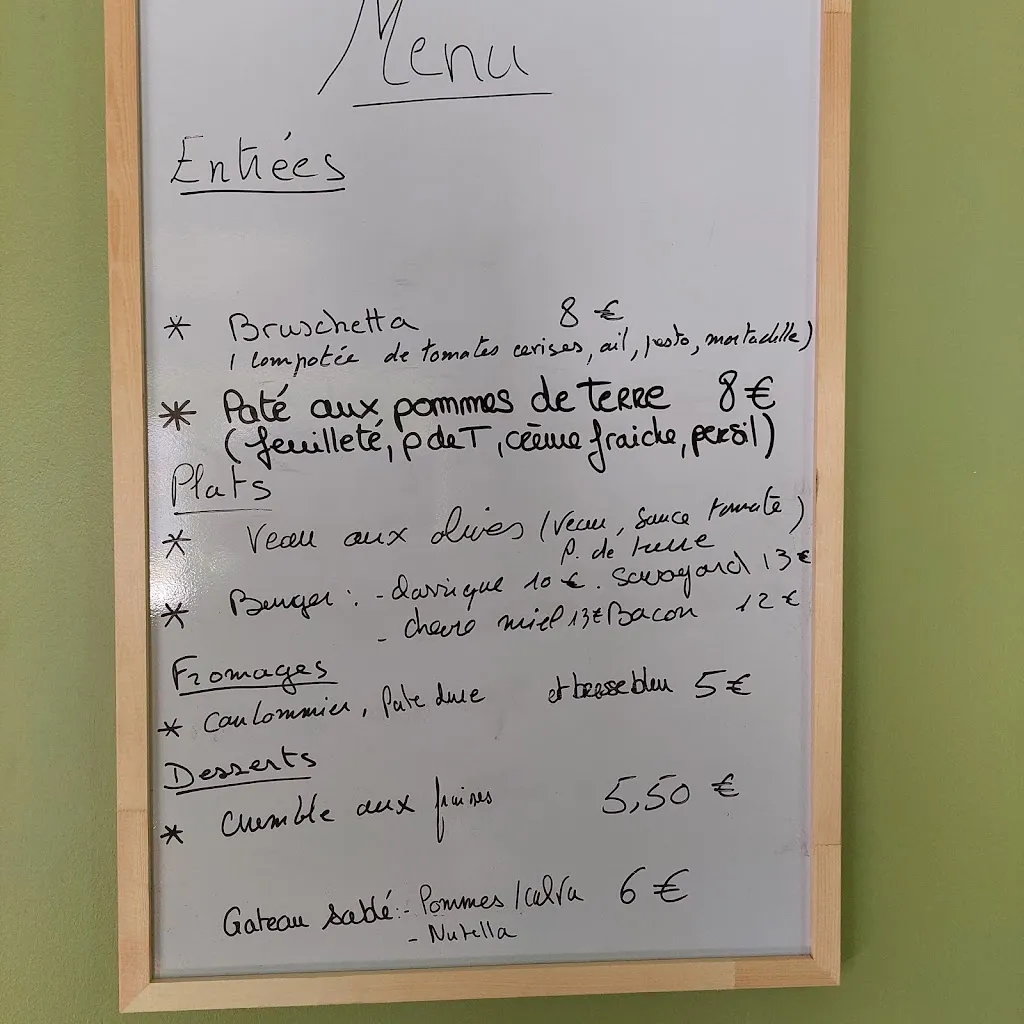 Menu
Entrées
* Bruschetta 8 €
( compotée de tomates cerises, ail, pesto, mortadelle)
* Paté aux pommes de terre 8€
(feuilleté, p de T, crème fraiche, persil)
Plats
* Veau aux olives (veau, sauce tomate)
P. de terre
* Burger : - classique 10 €. Savoyard 13 €
- chèvre miel 13€ Bacon 12 €
Fromages
* Coulommier, Pate dure et bresse bleu 5 €
Desserts
* Crumble aux fraises 5,50 €
Gateau sablé :- Pommes / calva 6 €
- Nutella